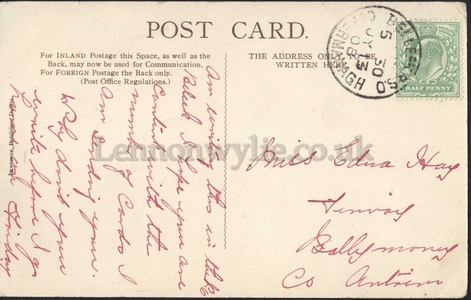 POST CARD.
For INLAND Postage this Space, as well as the
Back, may now be used for Communication.
For FOREIGN Postage the Back only.
(Post Office Regulations.)
THE ADDRESS ONLY TO BE
WRITTEN HERE
HALF PENNY
Lennonwylie.co.uk
Am writing this in the
hope you are
content with the
number of Cards I
am sending you.
Why don't you
write before I go
Friday
Miss Edna Hay
Ballymoney
Co Antrim